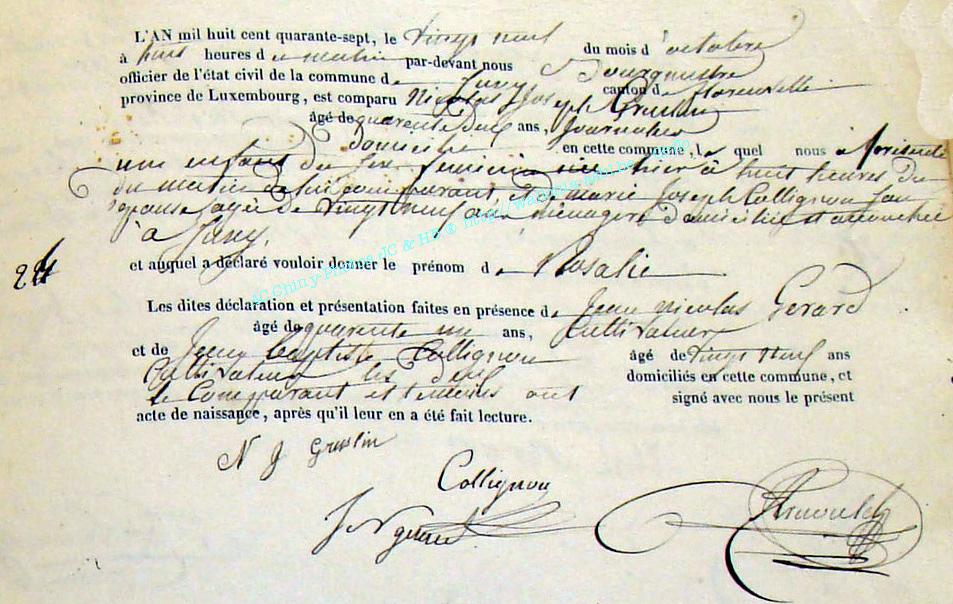 L'AN mil huit cent quarante-sept, le vingt neuf du mois d'octobre
à huit heures du matin par-devant nous Bourgmestre
officier de l'état civil de la commune de Jamoy canton de florenville
province de Luxembourg, est comparu Nicolas Joseph Gruslin
âgé de quarente deux ans, journalier
domicilié en cette commune, lequel nous a présenté
un enfant du sexe féminin née hier à huit heures du
du matin de lui comparant, et de marie Joseph Collignon sau
épouse agée de vingt neuf ans ménagère domiciliée et accouchée
à
224
et auquel a déclaré vouloir donner le prénom de Rosalie
Les dites déclaration et présentation faites en présence de Jean nicolas Gérard
âgé de quarente un ans, Cultivateur
et de Jean Baptiste Collignon âgé de vingt neuf ans
Cultivateur les deux domiciliés en cette commune, et
le Comparant et témoins ont signé avec nous le présent
acte de naissance, après qu'il leur en a été fait lecture.
N J Gruslin
Collignon
J N gerard